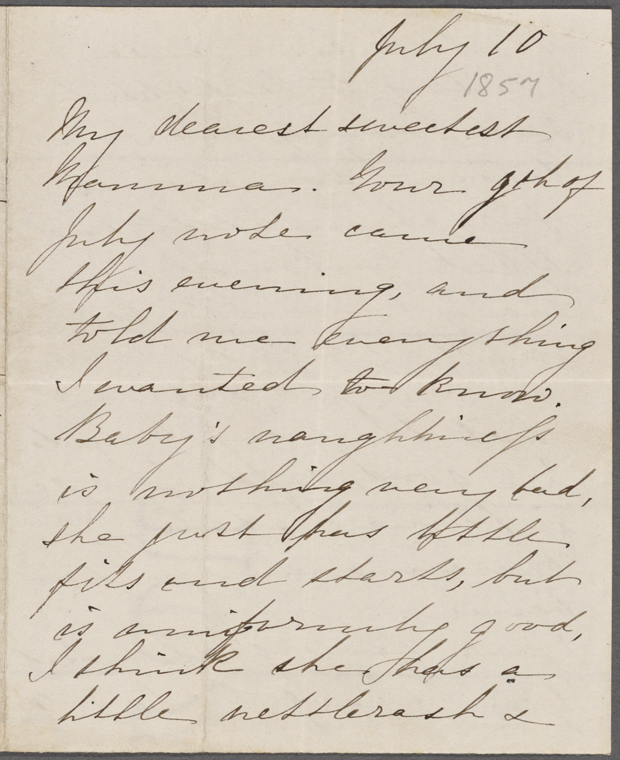 July 10
1857
My dearest sweetest
Mamma. Your 9th of
July note came
this evening, and
told me everything
I wanted to know.
Baby's naughtiness
is nothing very bad,
she just has little
fits and starts, but
is uniformly good,
I think she has a
little nettlerash &